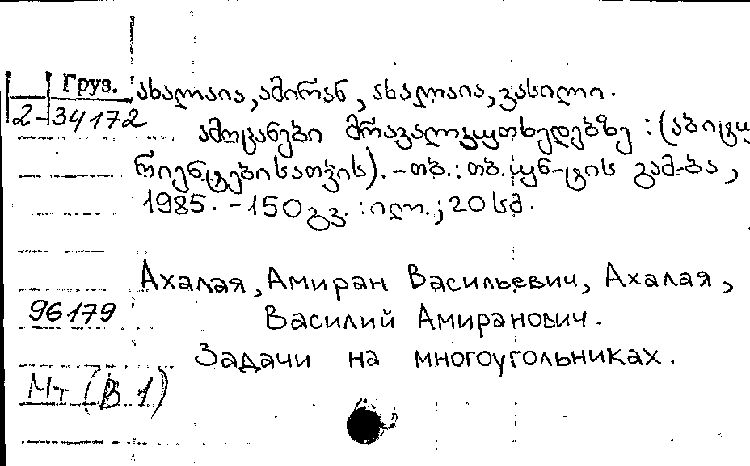 Груз.
2-34172
ახალაია, ამირან, ახალაია, ვასილი.
ამოცანები მრავალკუთხედებზე : (აბიტუ
რიენტებისათვის). - თბ. : თბ. უნ-ტის გამ-ბა,
1985. - 150 გვ. : ილ. ; 20 სმ.
Ахалая, Амиран Васильевич, Ахалая,
96179
Василий Амиранович.
Задачи на многоугольниках.
Мт (В 1)